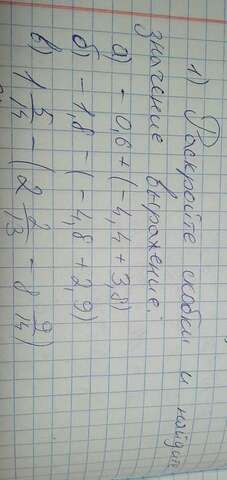 1) Раскройте скобки и найдите
значение выражение:
а) - 0,6 + (- 4,4 + 3,8)
б) - 1,8 - (- 4,8 + 2,9)
в) 1 5/14 - (2 2/13 - 8 9/14)